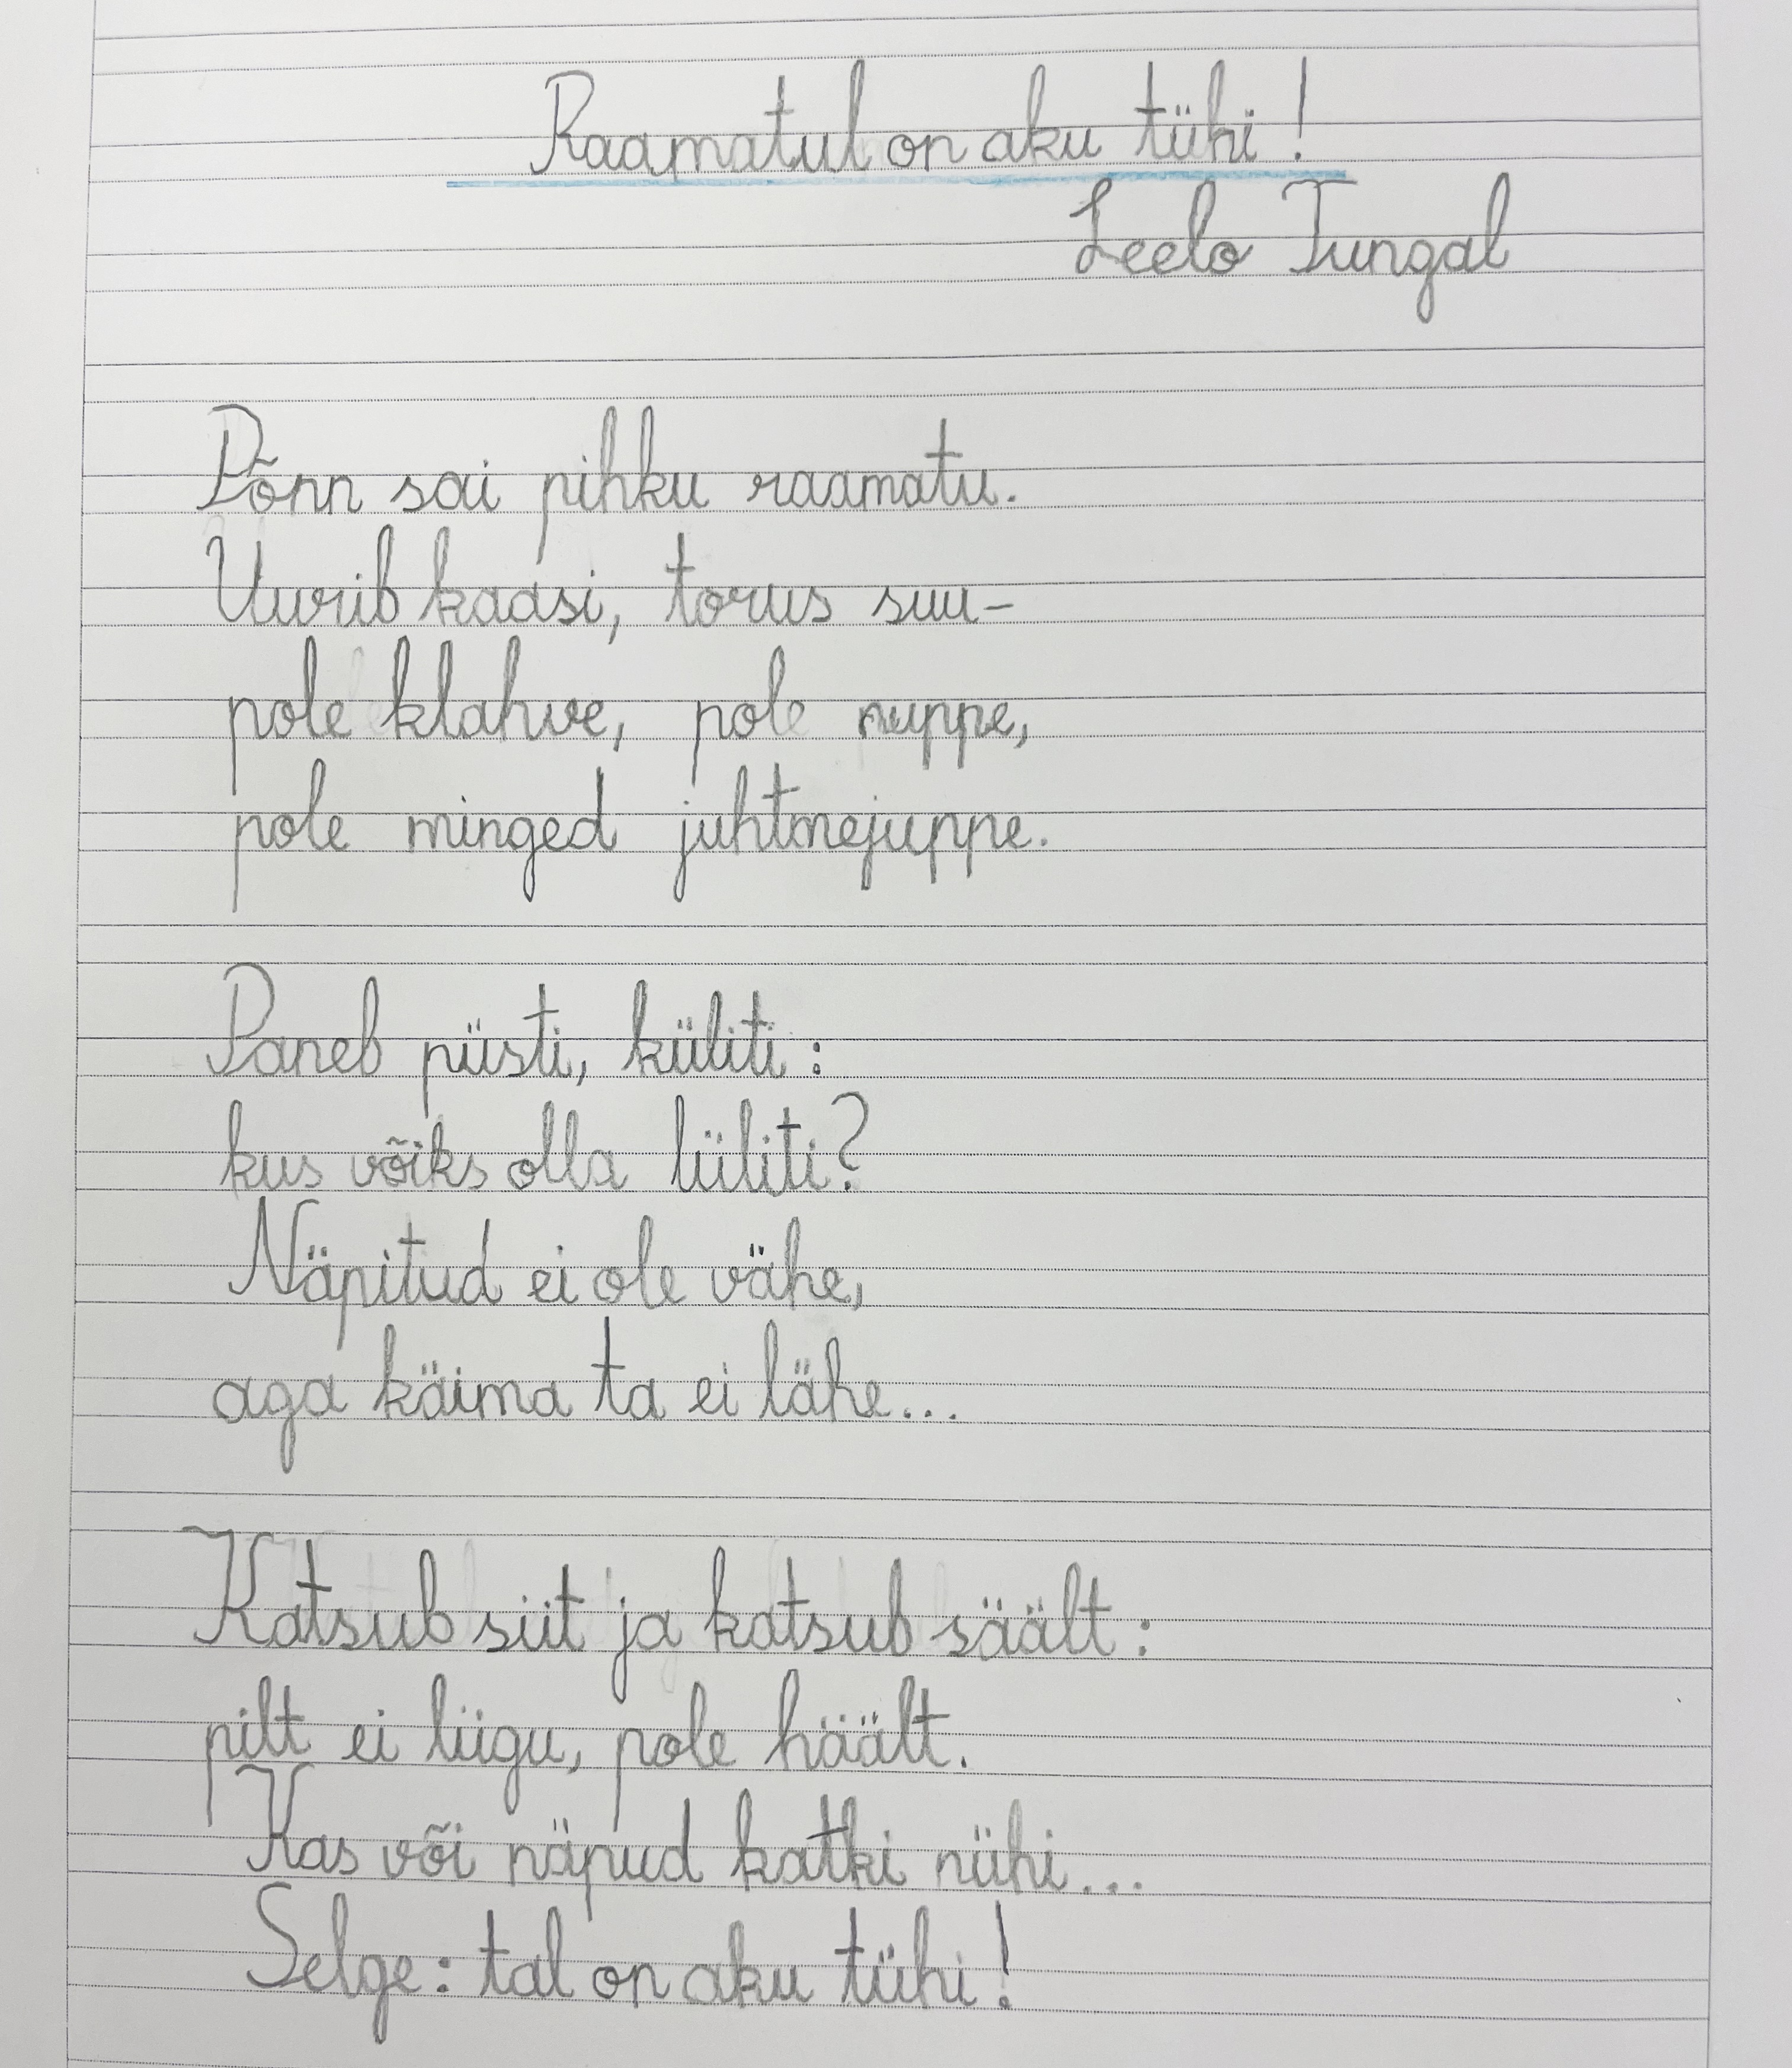 Raamatul on aku tühi!
Leelo Tungal
Põnn sai pihku raamatu.
Uurib kaasi, torus suu-
pole klahve, pole nuppe,
pole minged juhtmejuppe.
Paneb püsti, küliti:
kus võiks olla lüliti?
Näpitud ei ole vähe,
aga käima ta ei lähe...
Katsub siit ja katsub säält:
pilt ei liigu, pole häält.
Kas või näpud katki nühi...
Selge: tal on aku tühi!